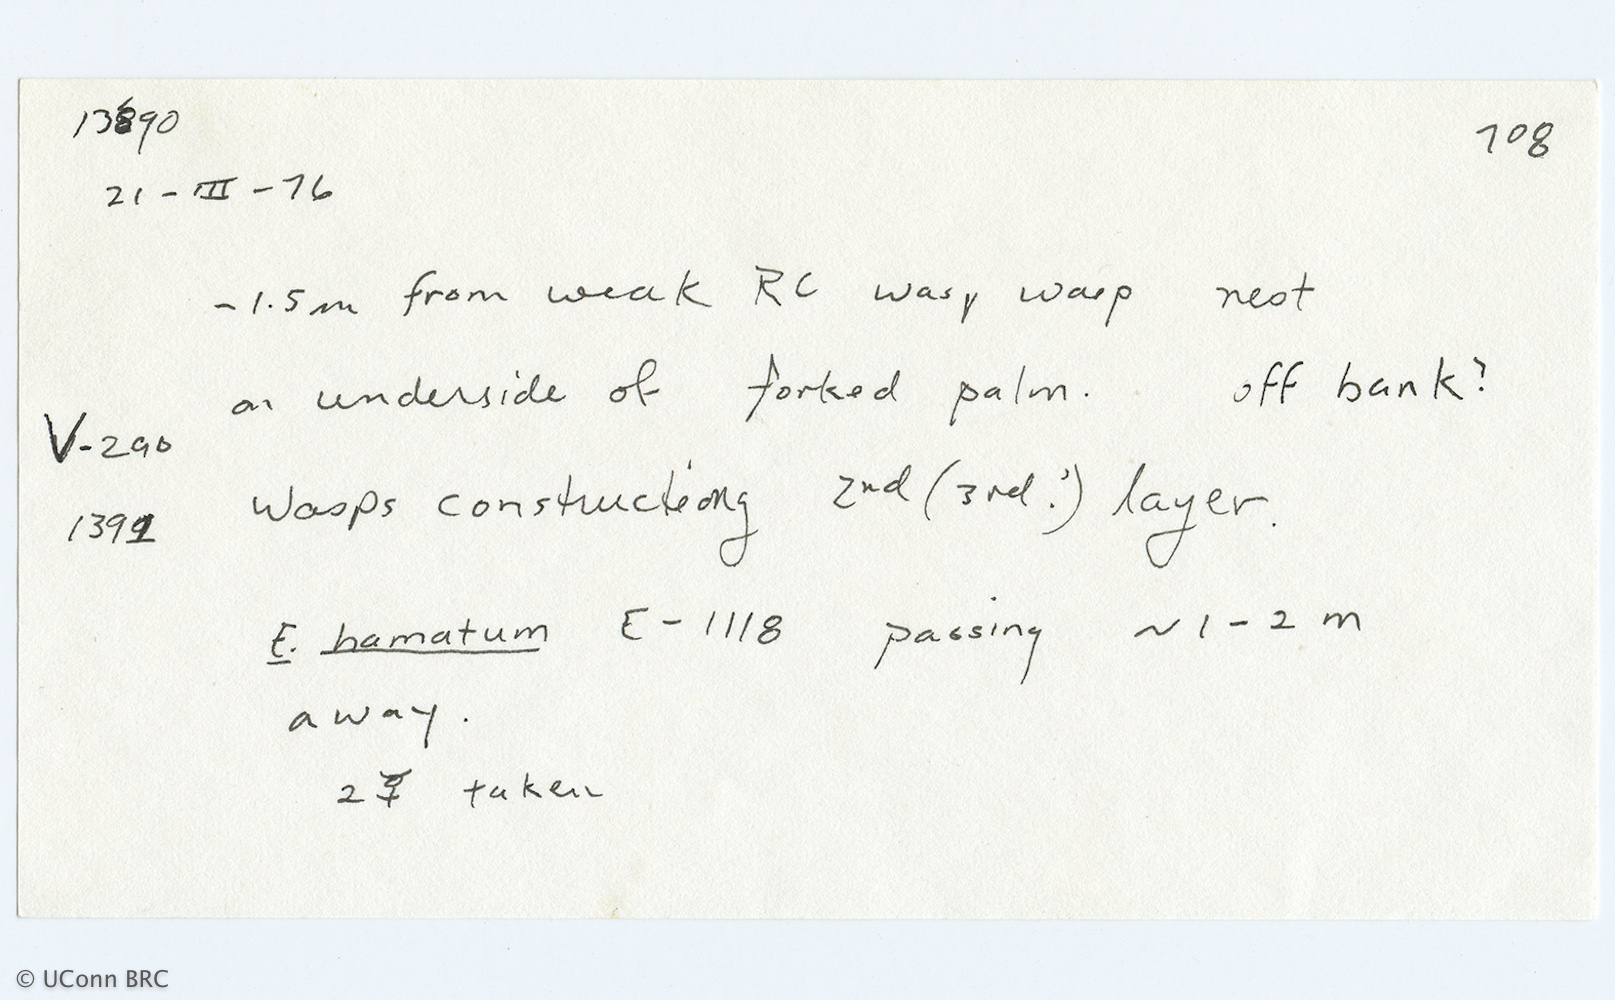 13890
708
21-III-76
-1.5m from weak RC wasp wasp nest
on underside of forked palm. off bank?
V-290
Wasps constructiong 2nd (3rd?) layer.
1391
E. hamatum E-1118 passing ~1-2 m
away.
2 ☿ taken
© UConn BRC